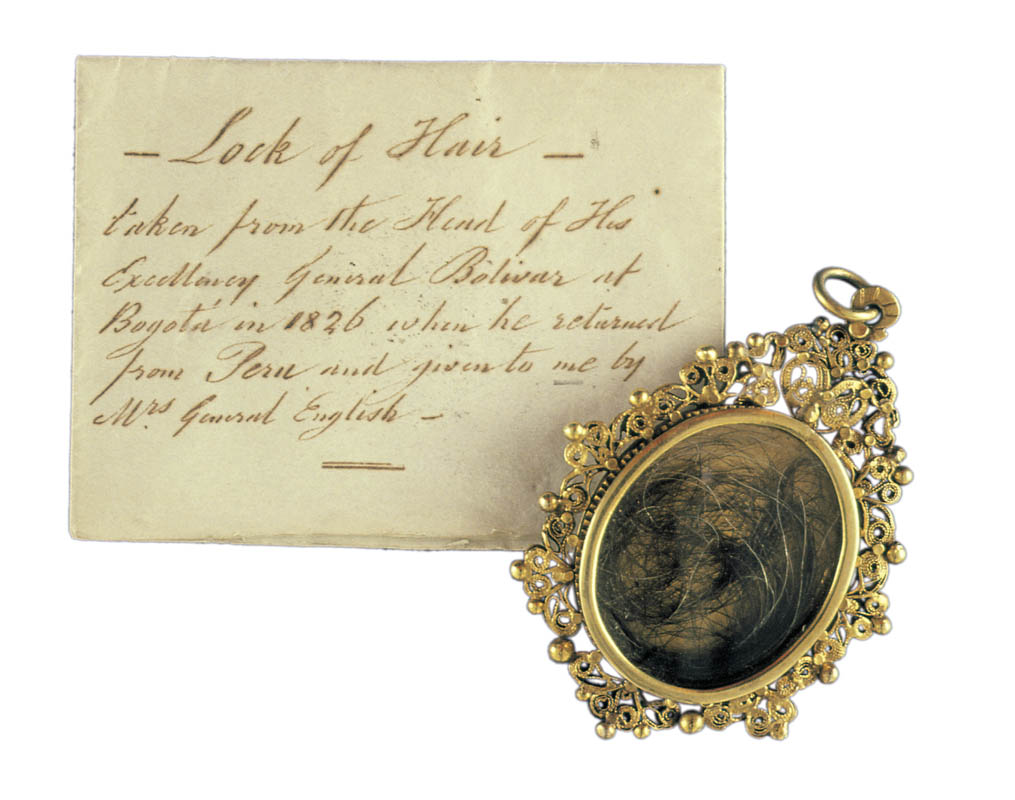 — Lock of Hair —
taken from the Head of His
Excellency General Bolivar at
Bogotá in 1826 when he returned
from Peru and given to me by
Mrs General English —